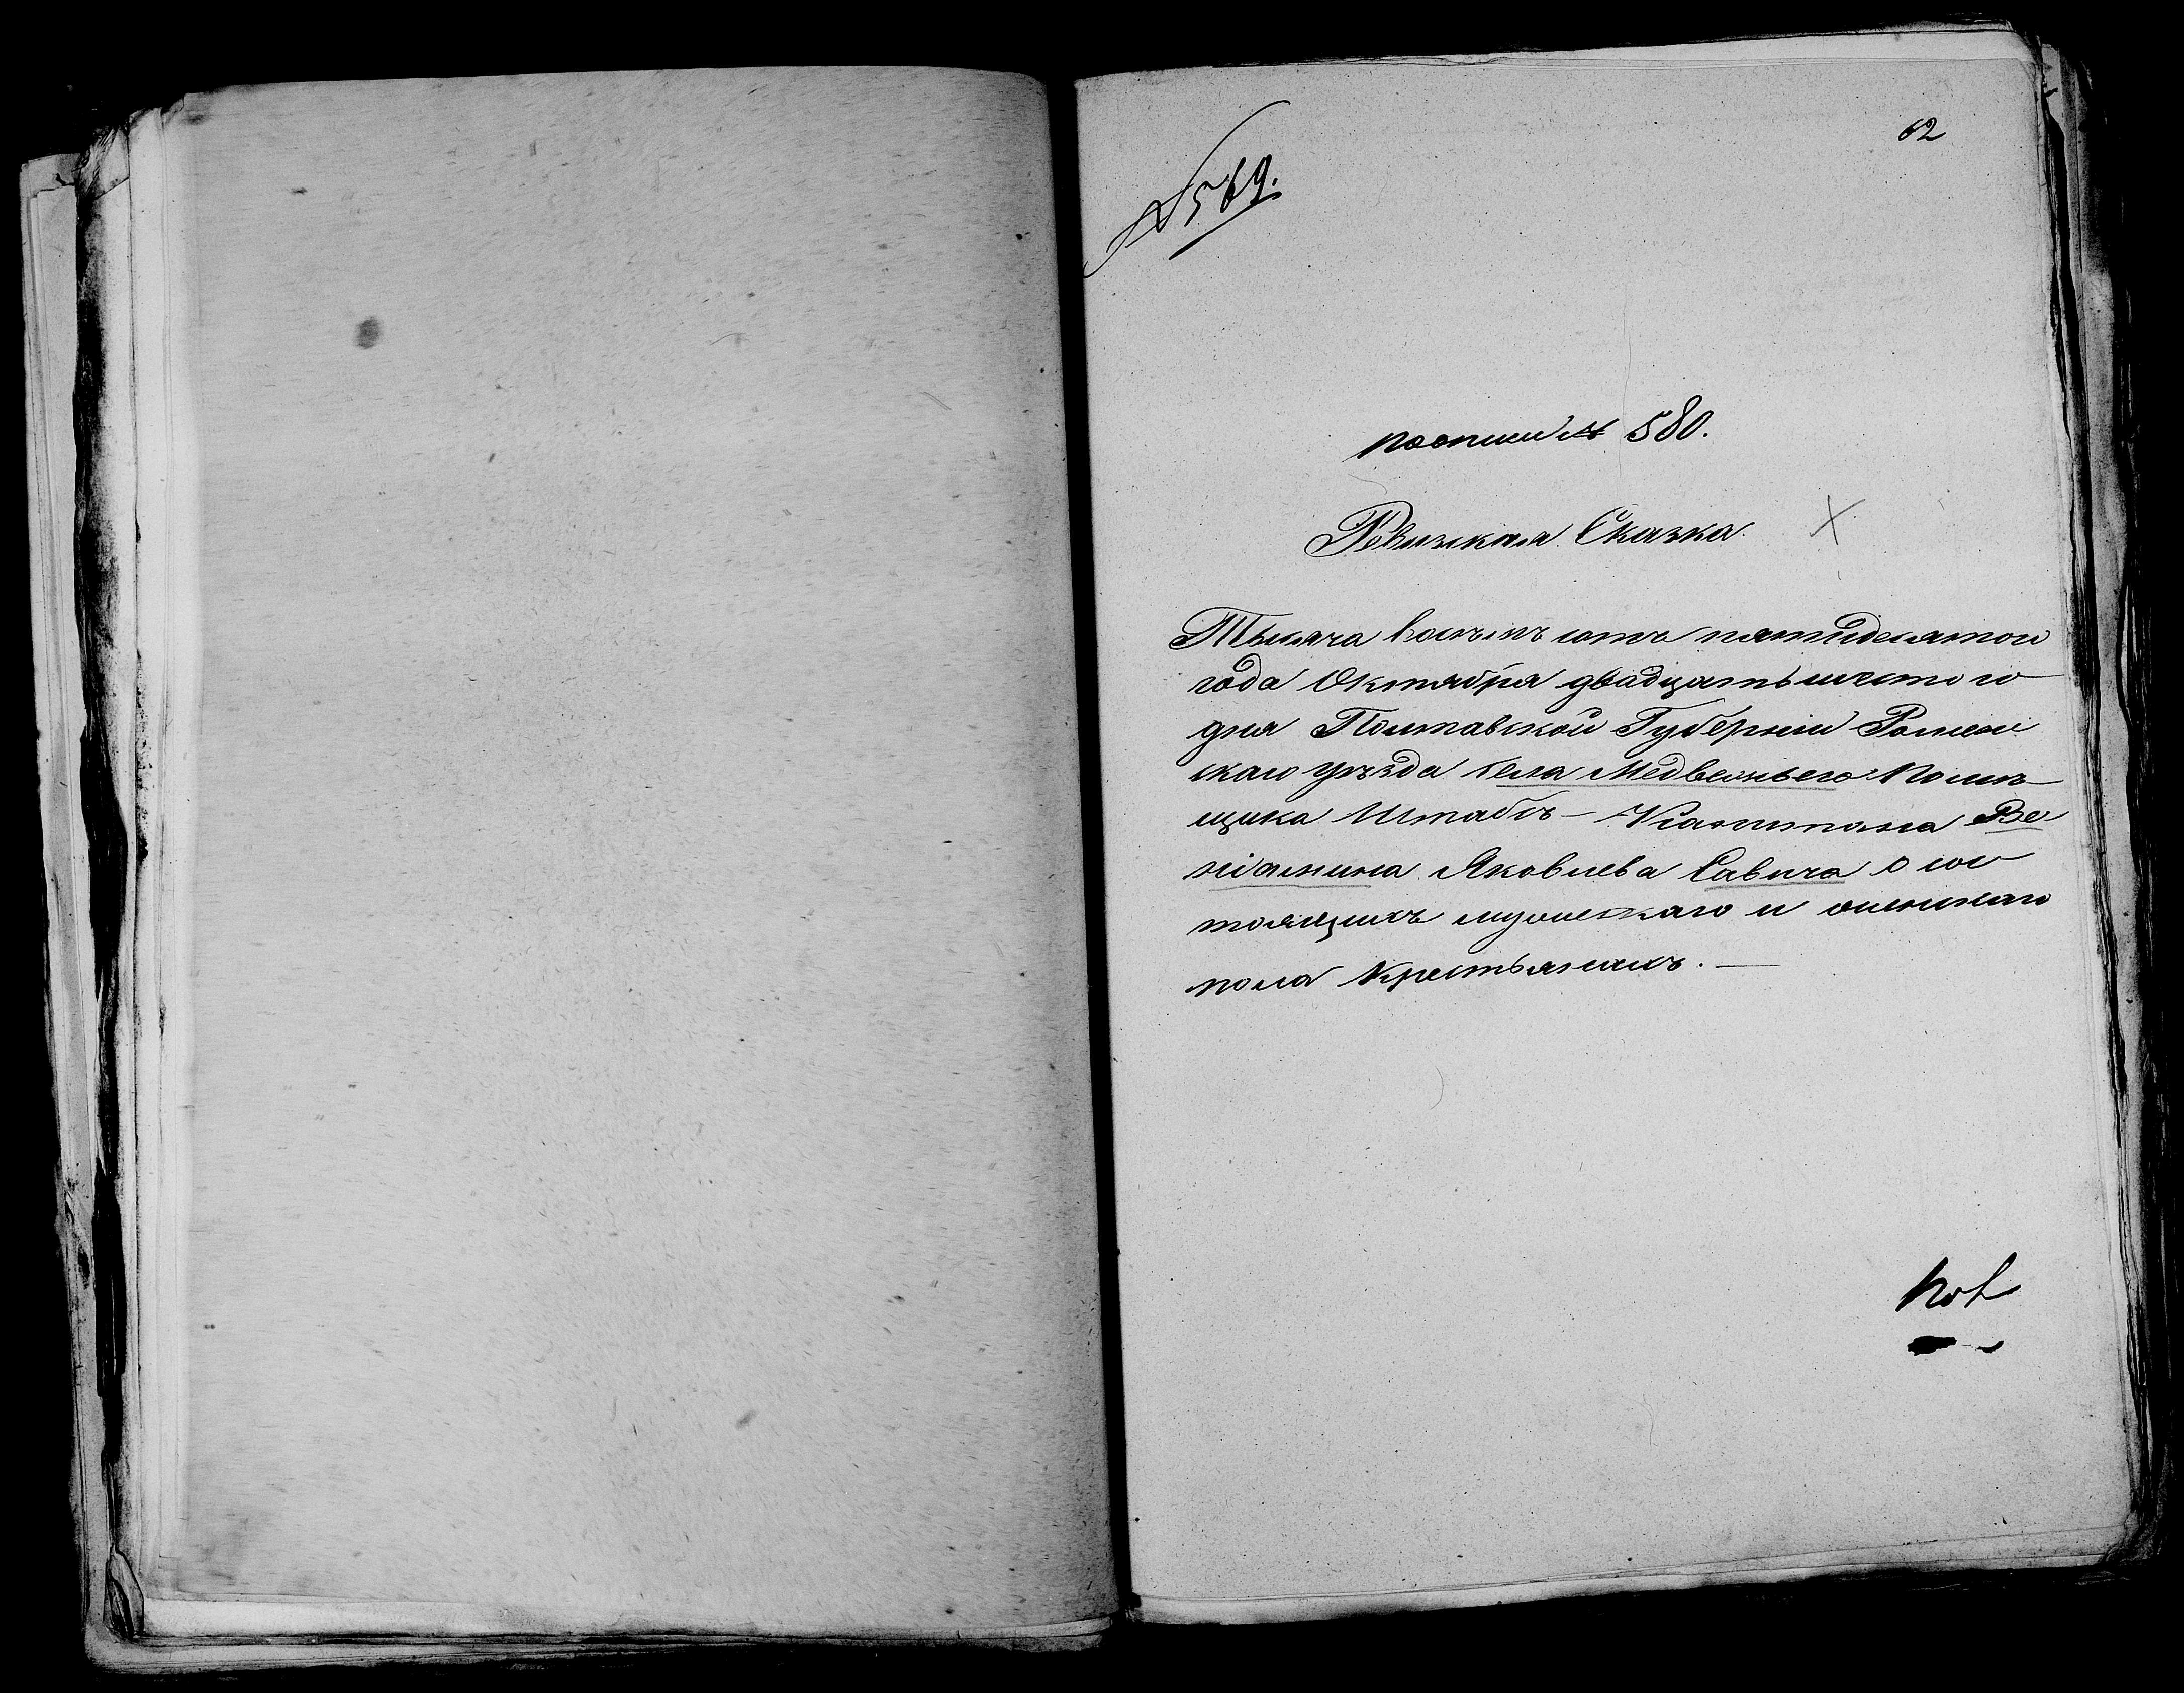 62
№ 569.
по описи № 580.
Ревизская Сказка.
Тысяча восемъ сотъ пятидесятого
года Октября двадцать шестого
дня Полтавской Губернiи Ромен
скаго уѣзда села Медвежьего Помѣ
щика Штабсъ-Капитана Ве
нiамина Яковлева Савича о сос
тоящихъ мужескаго и женскаго
пола Крестьянахъ. —